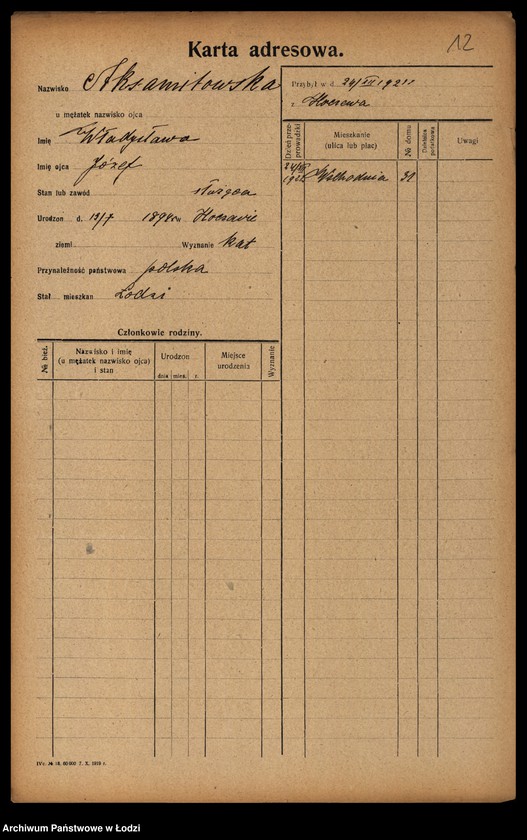 12
Karta adresowa.
Nazwisko Aksamitowska
u mężatek nazwisko ojca
Imię Władysława
Imię ojca Józef
Stan lub zawód służąca
Urodzon d. 13/7 1894 r. w
ziemi Wyznanie kat
Przynależność państwowa polska
Stał. mieszkan Łodzi
Członkowie rodziny.
№ bież.
Nazwisko i imię
(u mężatek nazwisko ojca)
i stan
Urodzon
dnia mies. r.
Miejsce
urodzenia
Wyznanie
Przybył w d. 24/VII 1921
z
Dzień prze-
prowadzki
Mieszkanie
(ulica lub plac)
№ domu
Dzielnica
podatkowa
Uwagi
24/VII
1921 Wschodnia 31
IVc. № 18. 60 000 7. X. 1919 r.
Archiwum Państwowe w Łodzi